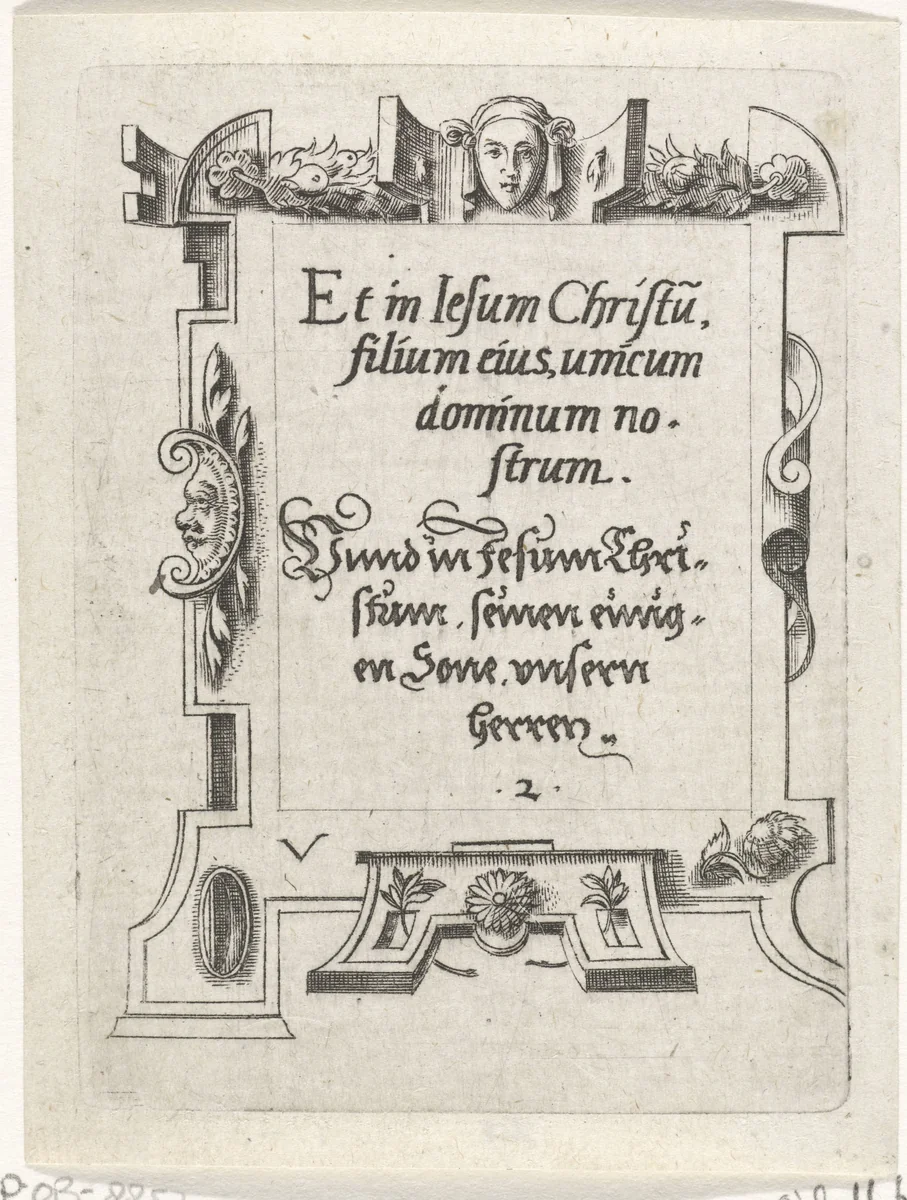 Et in Iesum Christū,
filium eius, unicum
dominum no.
strum.
Vnnd in Jesum Chri„
stum, seinen einig„
en Sone, vnsern
herren„
.2.
V